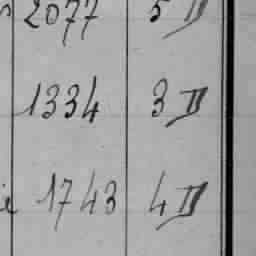 2077 5 II
1334 3 II
1743 4 II